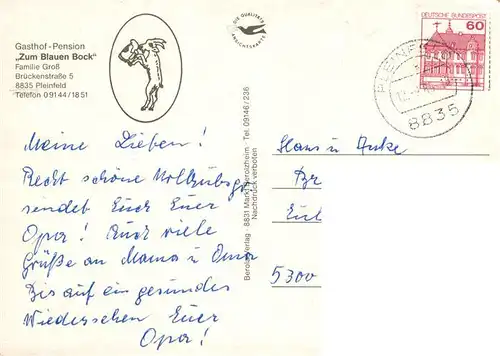 Gasthof - Pension
„Zum Blauen Bock“
Familie Groß
Brückenstraße 5
8835 Pleinfeld
Telefon 09144/1851
DIE QUALITÄTS
ANSICHTSKARTE
DEUTSCHE BUNDESPOST
60
PLEINFELD
8835
Meine Lieben!
Recht schöne
sendet Euch Euer
Opa! Auch viele
Grüße an Mama u Oma
Bis auf ein gesundes
Wiedersehen Euer
Opa!
Verlag 8831 Markt Berolzheim Tel. 09146/236
Nachdruck verboten
Hans u Anke
Br
5300